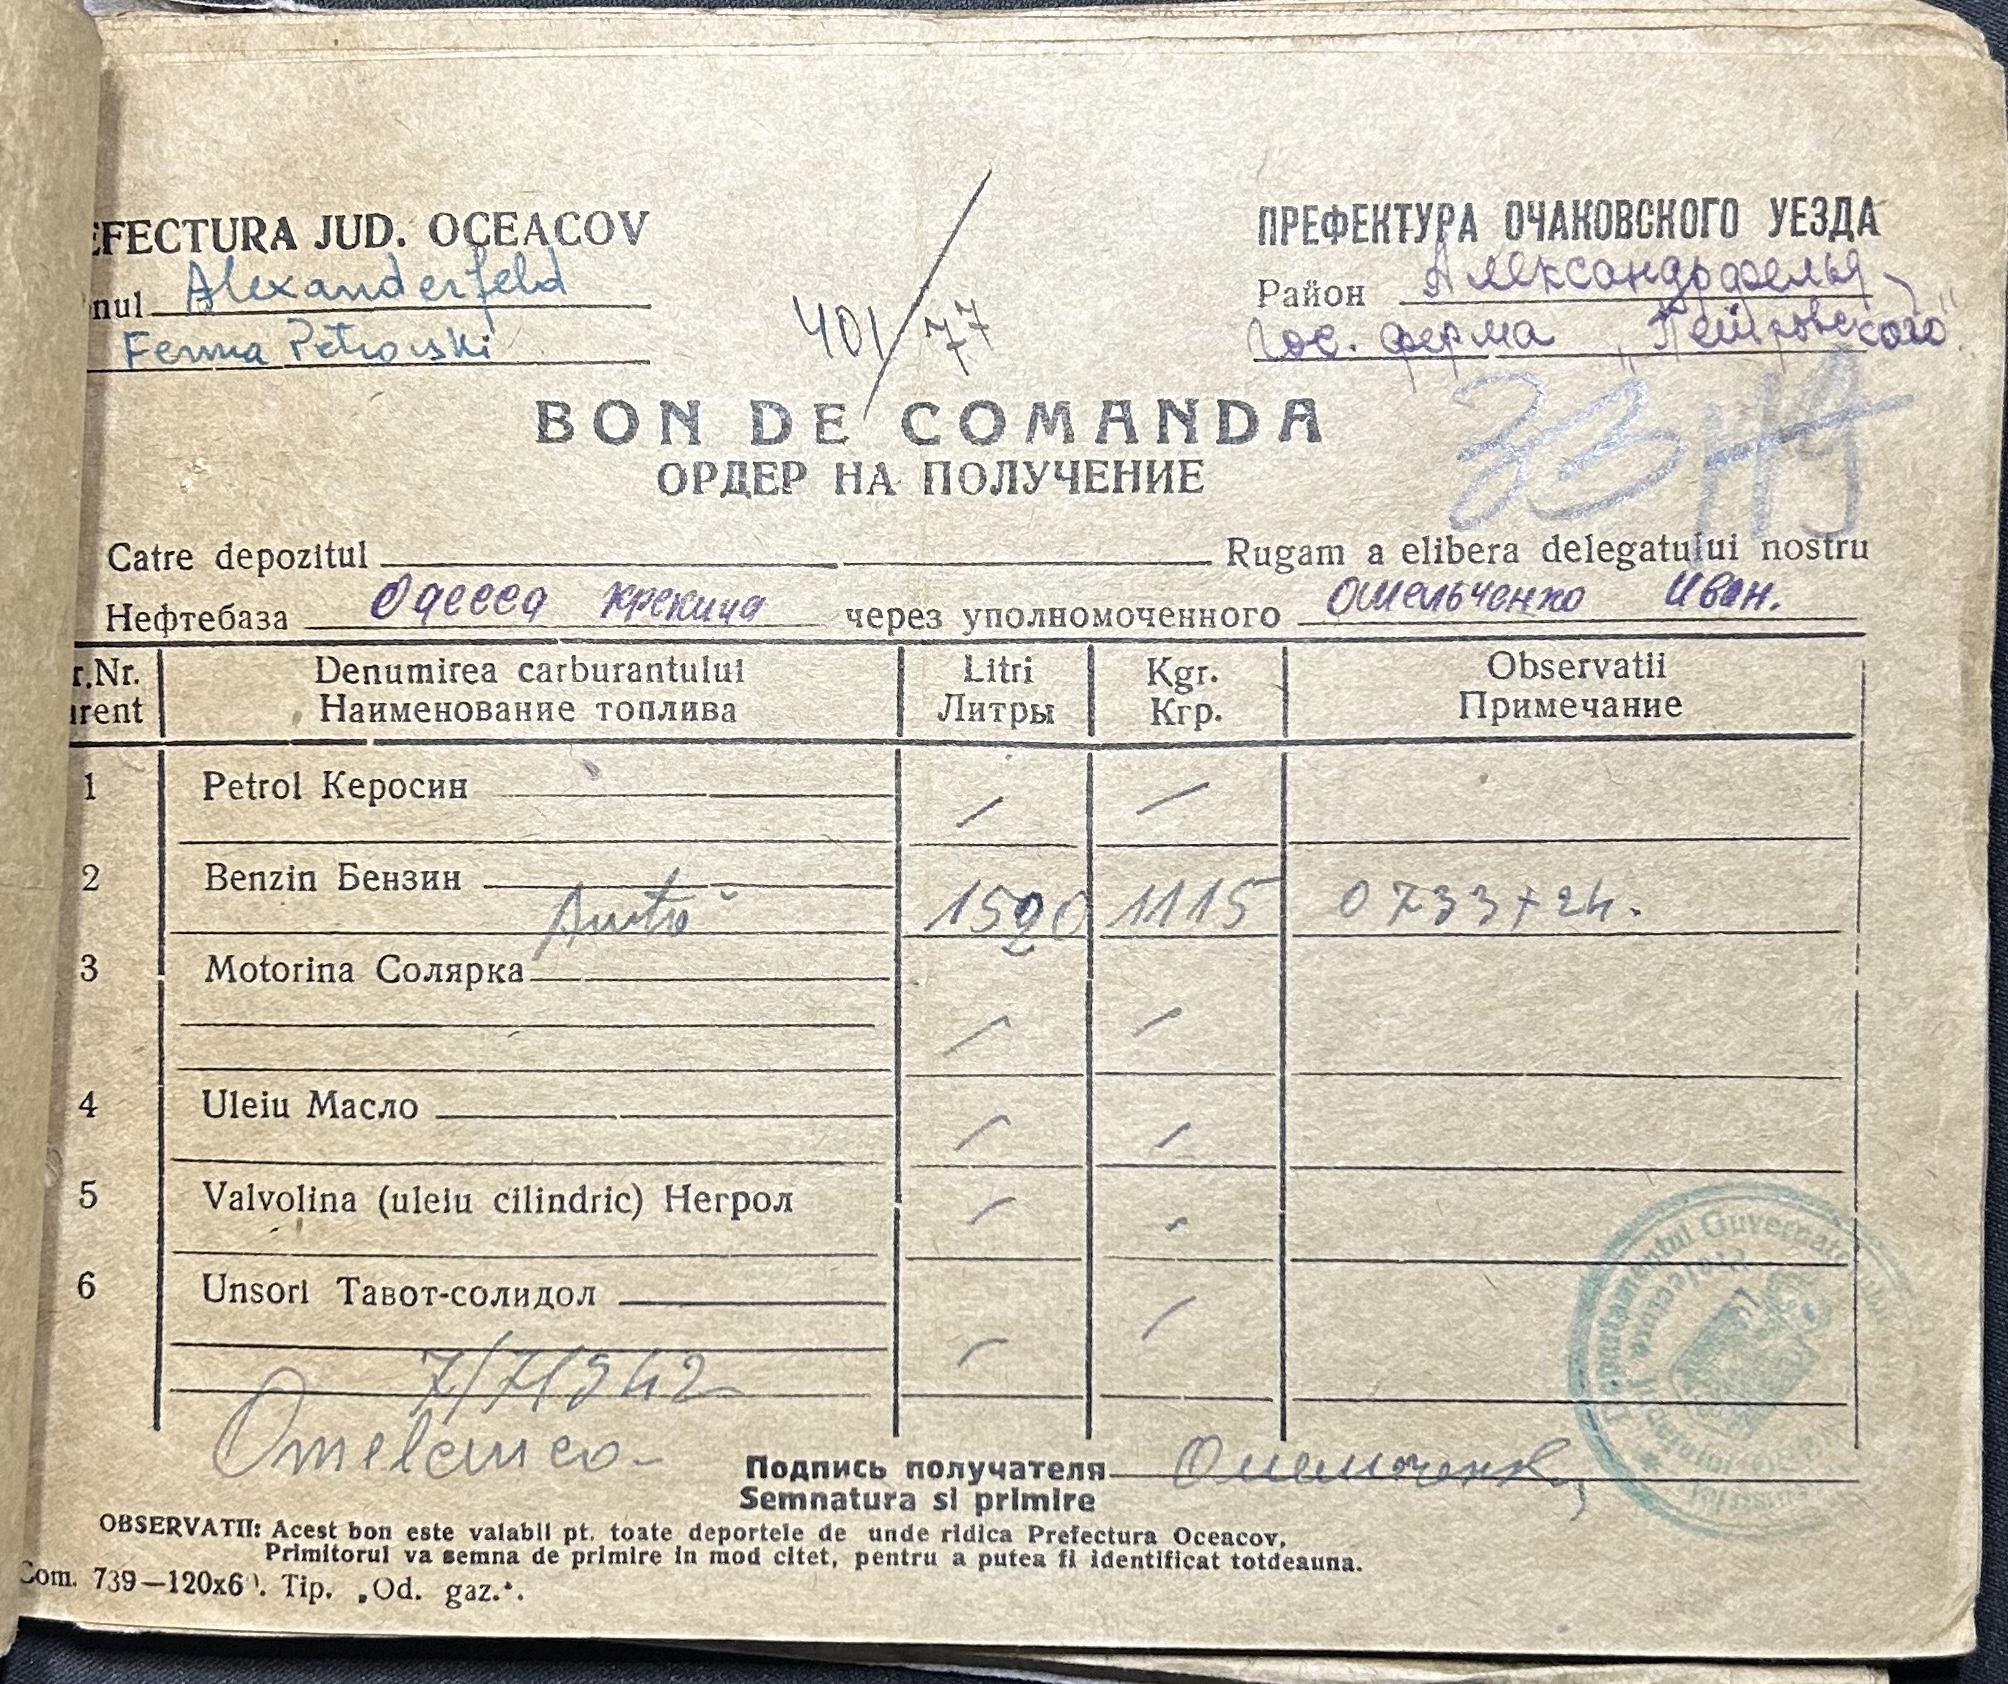 EFECTURA JUD. OCEACOV
nul Alexanderfeld
Ferma Petrovski
401/77
ПРЕФЕКТУРА ОЧАКОВСКОГО УЕЗДА
Район Александрфельд
Гос. ферма „Петровского"
BON DE COMANDA
ОРДЕР НА ПОЛУЧЕНИЕ
Catre depozitul Rugam a elibera delegatului nostru
Нефтебаза Одесса через уполномоченного Омельченко Иван.
r.Nr. Denumirea carburantului Litri Kgr. Observatii
urent Наименование топлива Литры Кгр. Примечание
1 Petrol Керосин
2 Benzin Бензин
Auto 1520 1115 0733+24.
3 Motorina Солярка
4 Uleiu Масло
5 Valvolina (uleiu cilindric) Негрол
6 Unsori Тавот-солидол
7/7/942
Omelcenco
Подпись получателя Омельченко
Semnatura si primire
OBSERVATII: Acest bon este valabil pt. toate deportele de unde ridica Prefectura Oceacov,
Primitorul va semna de primire in mod citet, pentru a putea fi identificat totdeauna.
Com. 739—120x6 . Tip. „Od. gaz.".